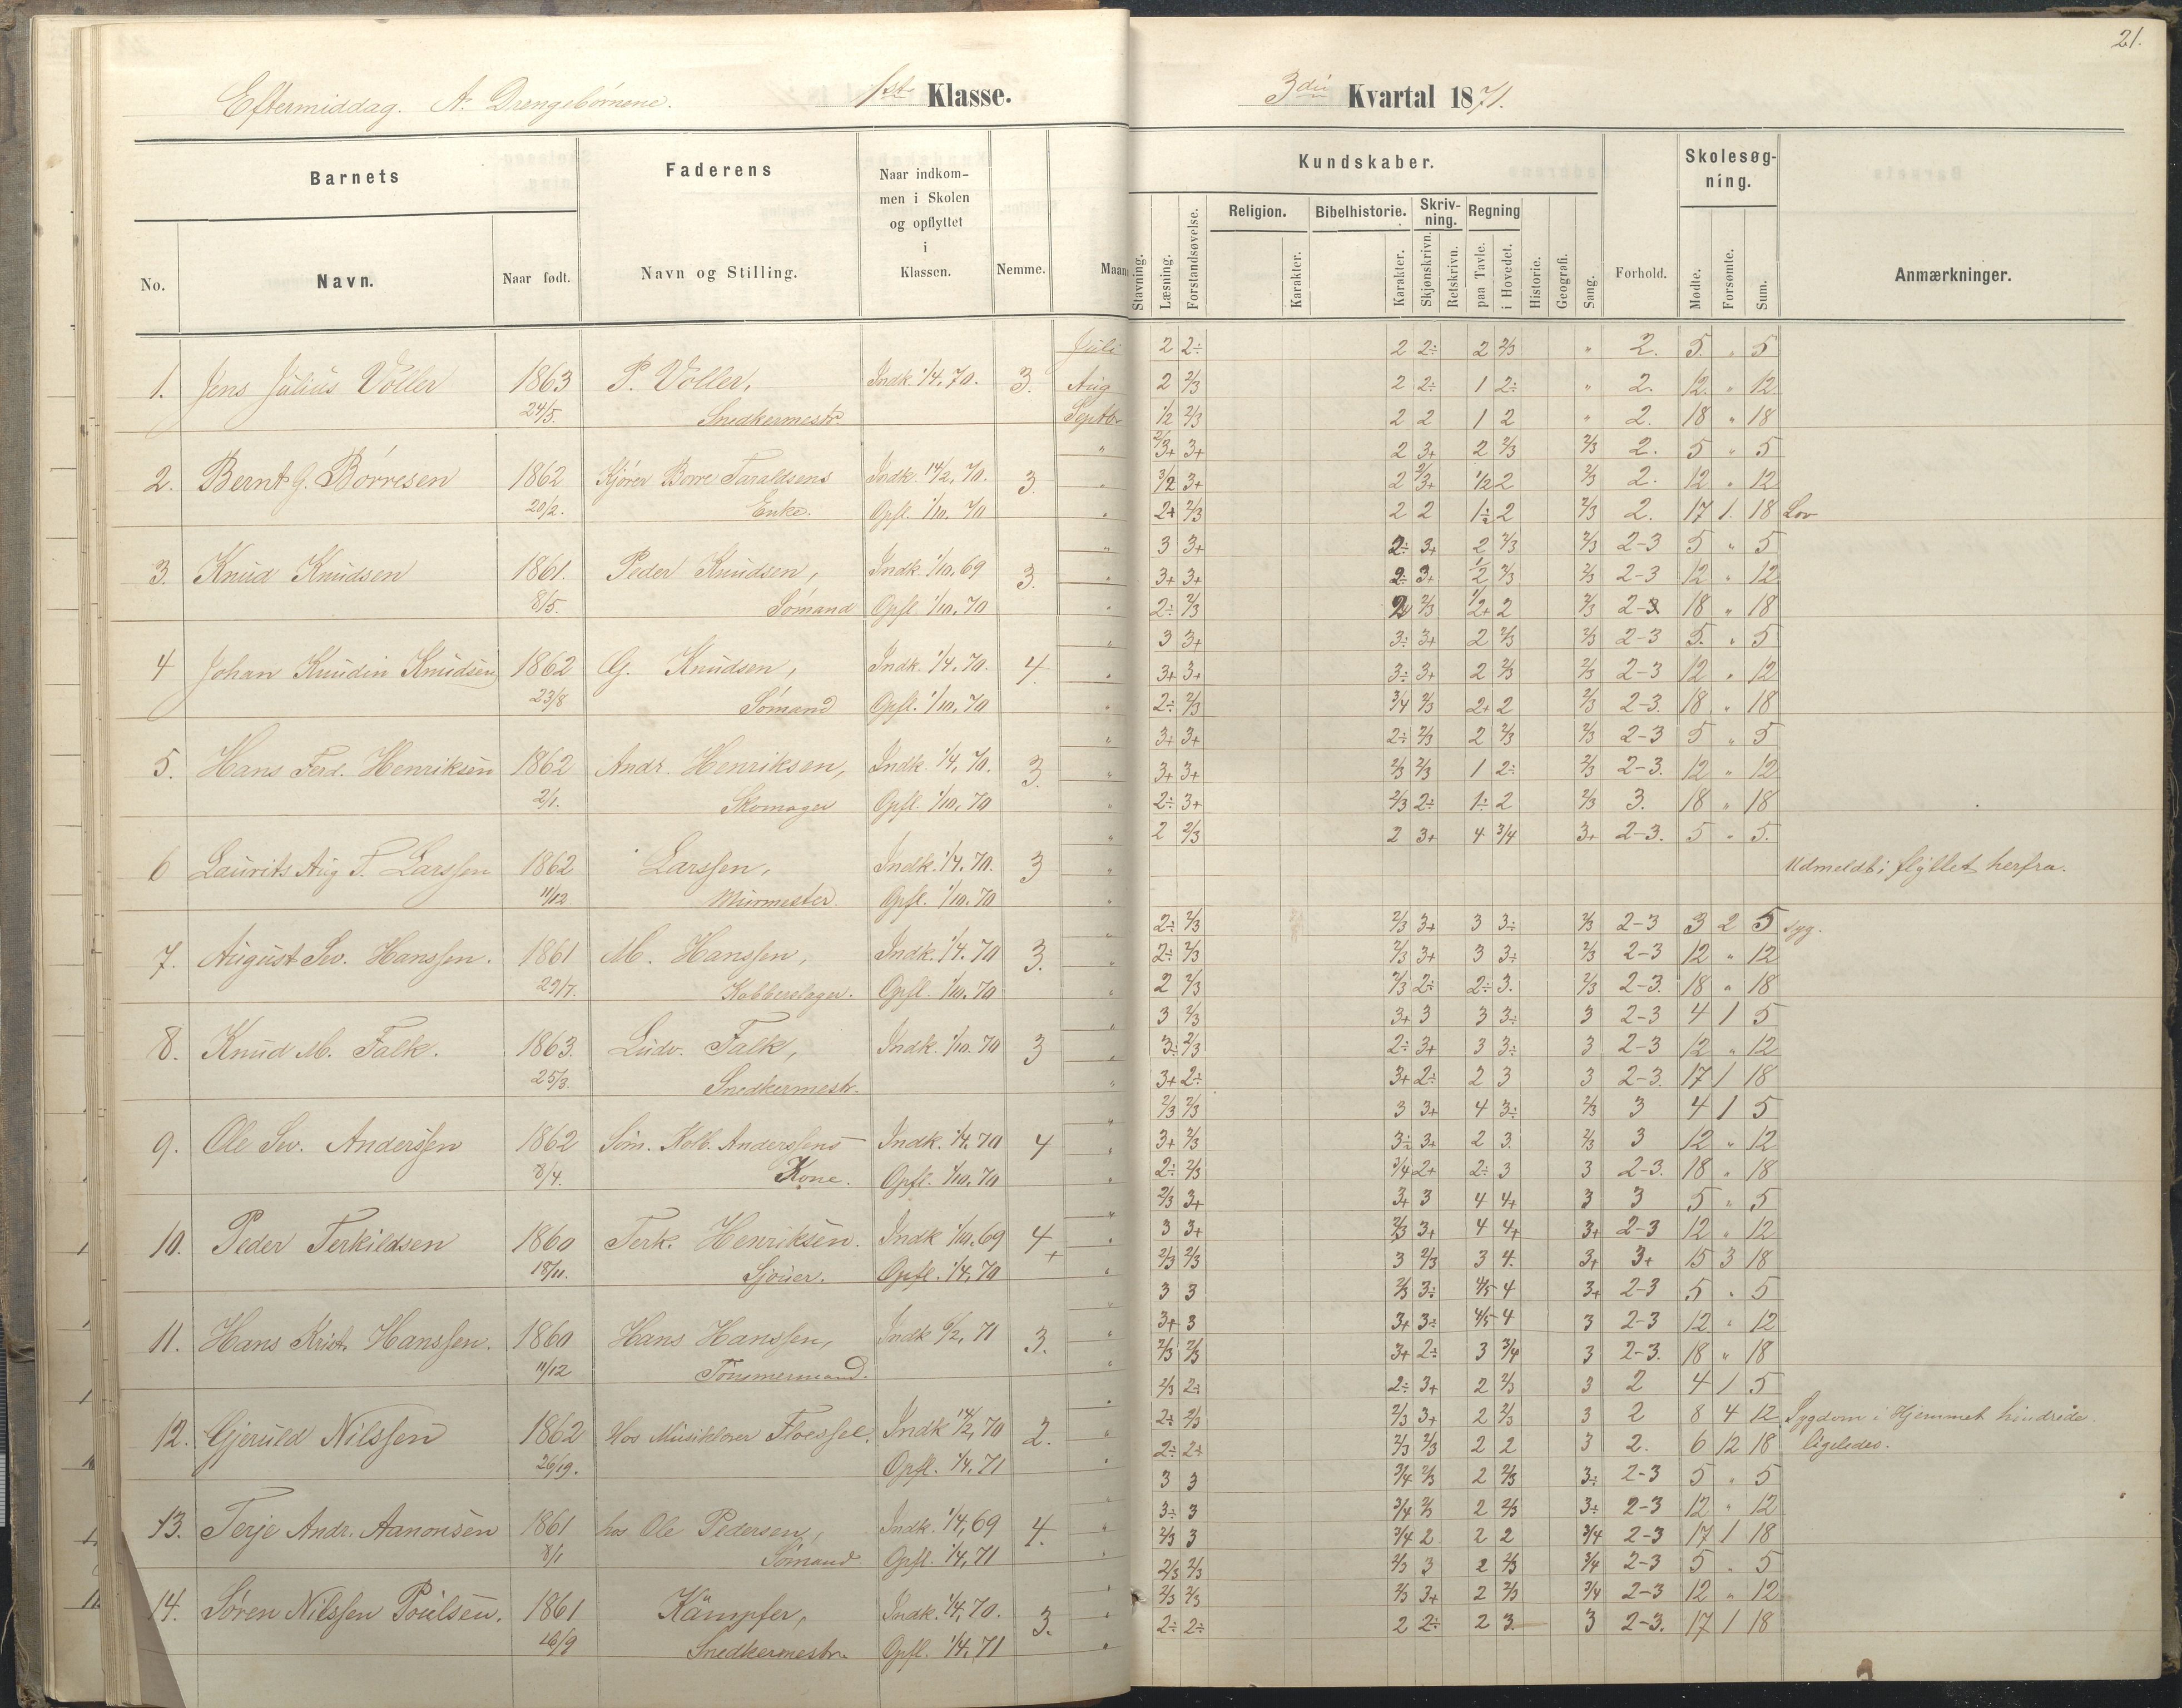 21.
Eftermiddag. A. Drengebørnene. 1ste Klasse. 3die Kvartal 1871.
Barnets Faderens Naar indkom- Kundskaber. Skolesøg-
men i Skolen ning.
og opflyttet Religion. Bibelhistorie. Skriv- Regning
i ning.
No. Navn. Naar født. Navn og Stilling. Klassen. Nemme. Maan Stavning. Læsning. Forstandsøvelse. Karakter. Karakter. Skjønskrivn. Retskrivn. paa Tavle. i Hovedet. Historie. Geografi. Sang. Forhold. Mødte. Forsømte. Sum. Anmærkninger.
Juli 2 2÷ 2 2÷ 2 2/3 " 2. 5. " 5
1. Jens Julius Voller 1863 P. Voller, Indk. 1/4. 70. 3. Aug 2 2/3 2 2÷ 1 2÷ " 2. 12. " 12.
24/5. Snedkermestr Septbr 1/2 2/3 2 2 1 2 " 2. 18 " 18
" 2/3+ 3+ 2 3+ 2 2/3 2/3 2. 5 " 5
2. Bernt G. Børresen 1862 Kjører Borre Taraldsens Indk. 14/2. 70. 3. " 3/2 3+ 2 2/3+ 1/2 2 2/3 2. 12 " 12
20/2. Enke. Opfl. 1/10. 70 " 2+ 2/3 2 2 1÷ 2 2/3 2. 17 1. 18 Lov
" 3 3+ 2÷ 3+ 2 2/3 2/3 2-3 5 " 5
3. Knud Knudsen 1861. Peder Knudsen, Indk. 1/10. 69 3. " 3+ 3+ 2÷ 3+ 1/2 2/3 2/3 2-3 12 " 12
8/5. Sømand Opfl. 1/10. 70 " 2÷ 2/3 2/3 1/2+ 2 2/3 2-3 18 " 18
" 3 3+ 3÷ 3+ 2 2/3 2/3 2-3 5. " 5
4 Johan Knudin Knudsen 1862 G. Knudsen, Indk. 1/4. 70. 4. " 3+ 3+ 3÷ 3+ 2 2/3 2/3 2-3 12 " 12
23/8 Sømand Opfl. 1/10. 70 " 2÷ 2/3 3/4 2/3 2+ 2 2/3 2-3. 18 " 18
" 3+ 3+ 2÷ 2/3 2 2/3 2/3 2-3 5 " 5
5. Hans Ferd. Henriksen 1862 Andr. Henriksen, Indk. 1/4. 70. 3. " 3+ 3+ 2/3 2/3 1 2÷ 2/3 2-3. 12 " 12
2/1. Skomager Opfl. 1/10. 70 " 2÷ 3+ 2/3 2÷ 1÷ 2 2/3 3. 18 " 18
" 2 2/3 2 3+ 4 3/4 3+ 2-3. 5 " 5.
6 Laurits Aug T. Larssen 1862 Larssen, Indk. 1/4. 70. 3 " Udmeldt; flyttet herfra.
11/12 Murmester. Opfl. 1/10. 70 "
" 2÷ 2/3 2/3 3+ 3 3÷ 2/3 2-3 3 2 5 syg.
7. August Sev. Hanssen. 1861 M. Hanssen, Indk. 1/4. 70 3. " 2÷ 2/3 2/3 3+ 3 3÷ 2/3 2-3 12 " 12
29/7. Kobberslager. Opfl. 1/10. 70 " 2 2/3 2/3 2÷ 2÷ 3. 2/3 2-3. 18 " 18
" 3 2/3 3+ 3 3 3÷ 3 2-3 4 1 5
8. Knud M. Falk. 1863. Ludv. Falk, Indk. 1/10. 70 3 " 3÷ 2/3 2÷ 3+ 3 3÷ 3 2-3 12 " 12
25/3. Snedkermestr. " 3+ 2÷ 3+ 2÷ 2 3 3 2-3. 17 1 18
" 2/3 2/3 3 3+ 4 3÷ 2/3 3 4 1 5
9. Ole Sev. Anderssen 1862 Søm. Kolb. Anderssens Indk. 1/4. 70 4 " 3+ 2/3 3÷ 3+ 2 3. 2/3 3 12 " 12
8/4. Kone. Opfl. 1/10. 70 " 2÷ 2/3 3/4 2+ 2÷ 3 3 2-3. 18 " 18
" 2/3 3+ 3+ 3 4 4+ 3 3 5 " 5
10. Peder Terkildsen 1860 Terk. Henriksen. Indk 1/10. 69 4+ " 3 3+ 2/3 3+ 4 4+ 3+ 2-3 12 " 12
18/11. Sjouer. Opfl. 1/4. 70 " 2/3 2/3 3 2/3 3 4. 3+ 3+ 15 3 18
" 3 3 2/3 3÷ 4/5 4 3+ 2-3 5 " 5
11. Hans Krist. Hanssen. 1860 Hans Hanssen, Indk 6/2. 71 3. " 3+ 3 3+ 3÷ 4/5 4 3 2-3 12. " 12
11/12 Tømmermand. " 2/3 2/3 3+ 2÷ 3 3/4 3 2-3. 18 " 18
" 2/3 2÷ 2÷ 3+ 2 2/3 3 2 4 1 5
12. Gjeruld Nilssen 1862 Hos Musiklærer Indk 14/2. 70 2. " 2÷ 2/3 2/3 3+ 2 2/3 3 2 8 4 12 Sygdom i Hjemmet hindrede.
26/19. Opfl. 1/4. 71 " 2÷ 2÷ 2/3 2/3 2 2 3 2. 6 12 18 ligeledes.
" 3 3 3/4 2/3 2 2/3 3÷ 2-3 5 " 5
13. Terje Andr. Aanonsen 1861 hos Ole Pedersen, Indk. 1/4. 69 4. " 3÷ 3 3/4 2/3 2 2/3 3÷ 2-3 12 " 12
8/1 Sømand Opfl. 1/4. 71 " 2/3 3 3/4 2 2 2 3/4 2-3 17 1 18
" 2/3 2/3 2/3 3 2 2/3 3/4 2-3 5 " 5
14. Søren Nilssen Poulsen. 1861 Kämpfer, Indk. 1/4. 70. 3. " 2/3 2/3 2/3 3+ 2 2/3 3/4 2-3 12 " 12
26/9 Snedkermestr. Opfl. 1/4. 71 " 2÷ 2÷ 2 2÷ 2 3. 3 2-3. 17 1 18